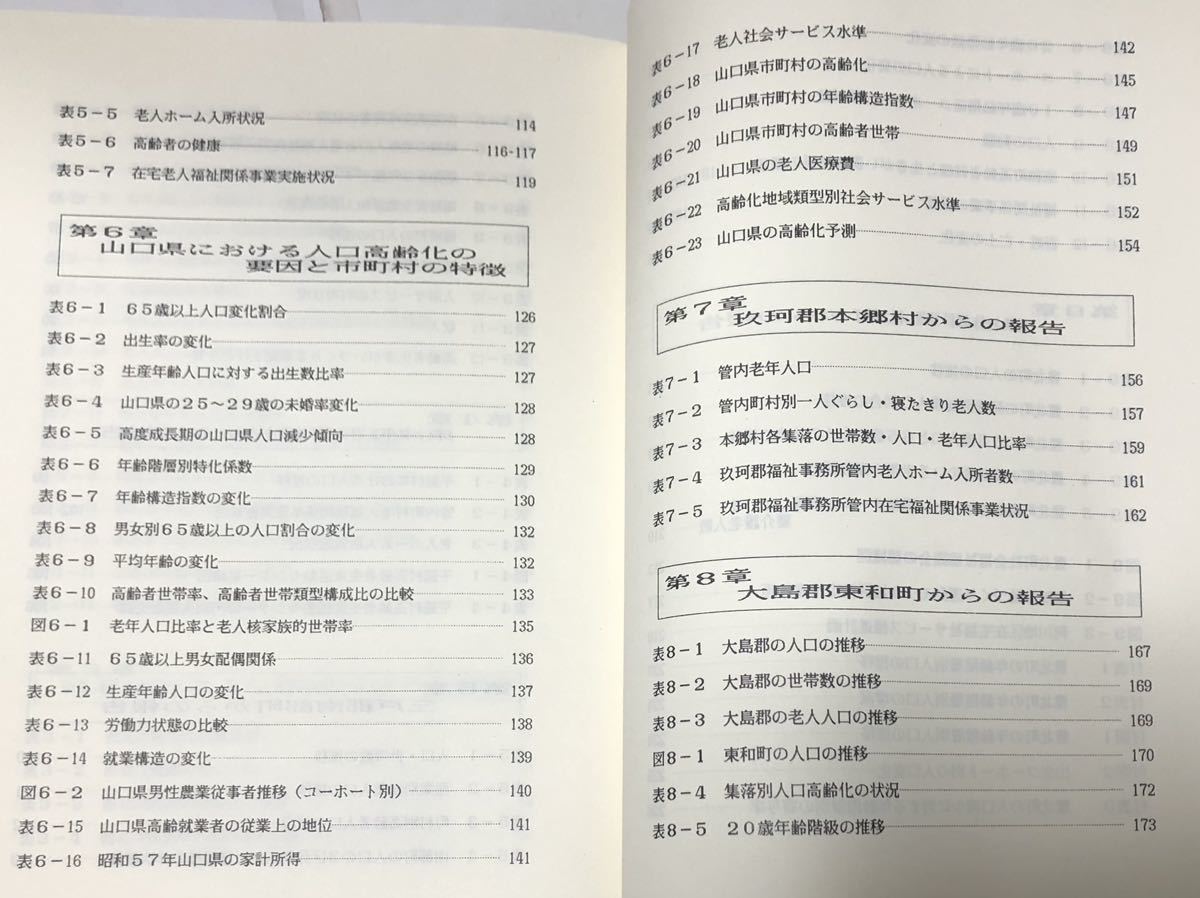 表5－5 老人ホーム入所状況 114
表5－6 高齢者の健康 116-117
表5－7 在宅老人福祉関係事業実施状況 119
第6章
山口県における人口高齢化の
要因と市町村の特徴
表6－1 65歳以上人口変化割合 126
表6－2 出生率の変化 127
表6－3 生産年齢人口に対する出生数比率 127
表6－4 山口県の25～29歳の未婚率変化 128
表6－5 高度成長期の山口県人口減少傾向 128
表6－6 年齢階層別特化係数 129
表6－7 年齢構造指数の変化 130
表6－8 男女別65歳以上の人口割合の変化 132
表6－9 平均年齢の変化 132
表6－10 高齢者世帯率、高齢者世帯類型構成比の比較 133
図6－1 老年人口比率と老人核家族的世帯率 135
表6－11 65歳以上男女配偶関係 136
表6－12 生産年齢人口の変化 137
表6－13 労働力状態の比較 138
表6－14 就業構造の変化 139
図6－2 山口県男性農業従事者推移（コーホート別） 140
表6－15 山口県高齢就業者の従業上の地位 141
表6－16 昭和57年山口県の家計所得 141
表6－17 老人社会サービス水準 142
表6－18 山口県市町村の高齢化 145
表6－19 山口県市町村の年齢構造指数 147
表6－20 山口県市町村の高齢者世帯 149
表6－21 山口県の老人医療費 151
表6－22 高齢化地域類型別社会サービス水準 152
表6－23 山口県の高齢化予測 154
第7章
玖珂郡本郷村からの報告
表7－1 管内老年人口 156
表7－2 管内町村別一人ぐらし・寝たきり老人数 157
表7－3 本郷村各集落の世帯数・人口・老年人口比率 159
表7－4 玖珂郡福祉事務所管内老人ホーム入所者数 161
表7－5 玖珂郡福祉事務所管内在宅福祉関係事業状況 162
第8章
大島郡東和町からの報告
表8－1 大島郡の人口の推移 167
表8－2 大島郡の世帯数の推移 169
表8－3 大島郡の老人人口の推移 169
図8－1 東和町の人口の推移 170
表8－4 集落別人口高齢化の状況 172
表8－5 20歳年齢階級の推移 173